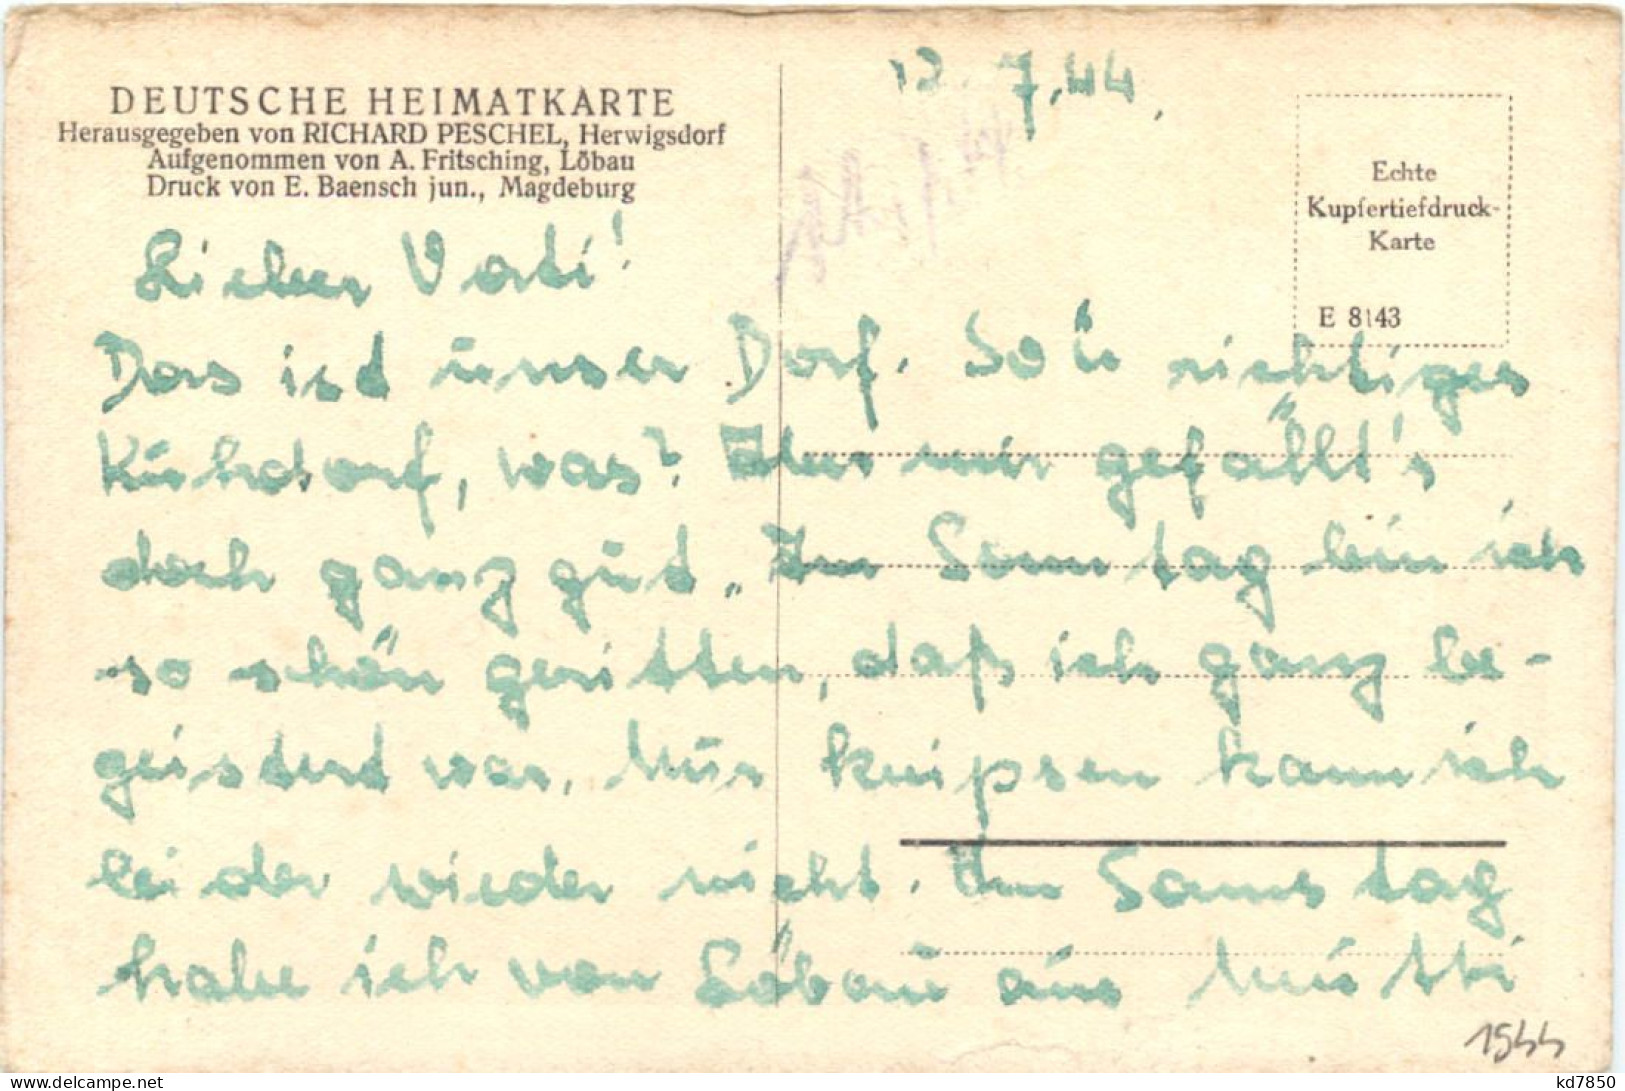 12.7.44.
DEUTSCHE HEIMATKARTE
Herausgegeben von RICHARD PESCHEL, Herwigsdorf
Aufgenommen von A. Fritsching, Löbau
Druck von E. Baensch jun., Magdeburg
Echte
Kupfertiefdruck-
Karte
E 8143
Lieber Vati!
Das ist unser Dorf. So'n richtiges
Kuhdorf, was? Aber mir gefällt's
doch ganz gut. Am Sonntag bin ich
so schön geritten, daß ich ganz be-
geistert war. Nur knipsen kann ich
leider wieder nicht. Am Samstag
habe ich von Löbau aus Mutti
1944
kd7850